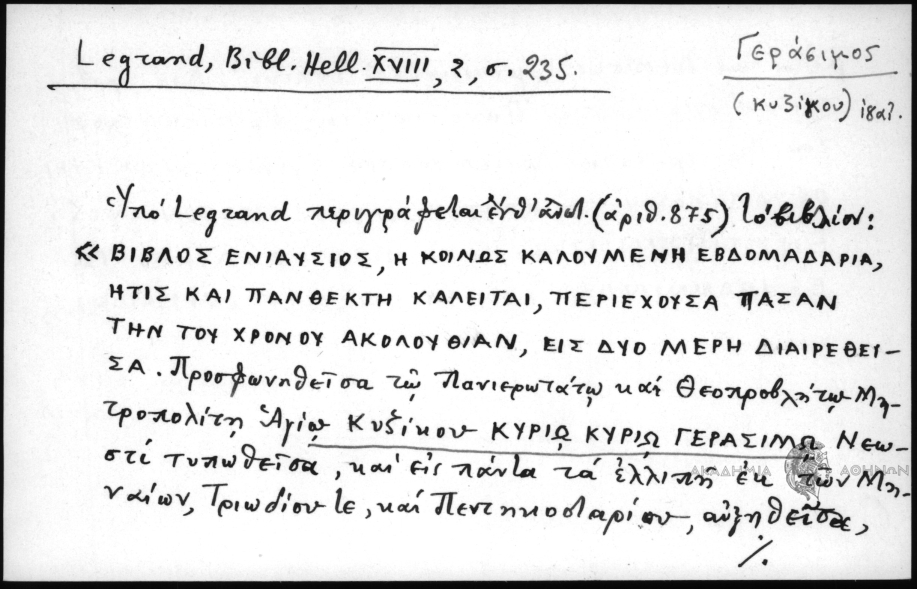 Legrand, Bibl. Hell. XVIII, 2, σ. 235.
Γεράσιμος
(Κυζίκου) ἰδαλ.
Ὑπό Legrand περιγράφεται ἐνθ' ἀνωτ. (ἀριθ. 875) τό βιβλίον:
« ΒΙΒΛΟΣ ΕΝΙΑΥΣΙΟΣ, Η ΚΟΙΝΩΣ ΚΑΛΟΥΜΕΝΗ ΕΒΔΟΜΑΔΑΡΙΑ,
ΗΤΙΣ ΚΑΙ ΠΑΝΘΕΚΤΗ ΚΑΛΕΙΤΑΙ, ΠΕΡΙΕΧΟΥΣΑ ΠΑΣΑΝ
ΤΗΝ ΤΟΥ ΧΡΟΝΟΥ ΑΚΟΛΟΥΘΙΑΝ, ΕΙΣ ΔΥΟ ΜΕΡΗ ΔΙΑΙΡΕΘΕΙ-
ΣΑ. Προσφωνηθεῖσα τῷ Πανιερωτάτῳ καί Θεοπροβλήτῳ Μη-
τροπολίτῃ Ἁγίῳ Κυζίκου ΚΥΡΙῼ ΚΥΡΙῼ ΓΕΡΑΣΙΜῼ Νεω-
στί τυπωθεῖσα, καί εἰς πάντα τά ἐλλιπῆ ἐκ τῶν Μη-
ναίων, Τριωδίου τε, καί Πεντηκοσταρίου, αὐξηθεῖσα,
./.
ΑΚΑΔΗΜΙΑ ΑΘΗΝΩΝ